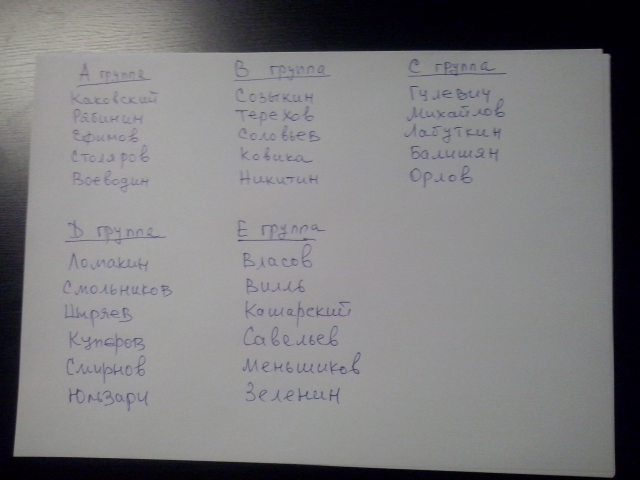 А группа
Каковский
Рябинин
Ефимов
Столяров
Воеводин
В группа
Созыкин
Терехов
Соловьев
Ковика
Никитин
С группа
Гулевич
Михайлов
Лабуткин
Балишян
Орлов
D группа
Ломакин
Смольников
Шыряев
Куперов
Смирнов
Е группа
Власов
Вилль
Кашарский
Савельев
Меньшиков
Зеленин